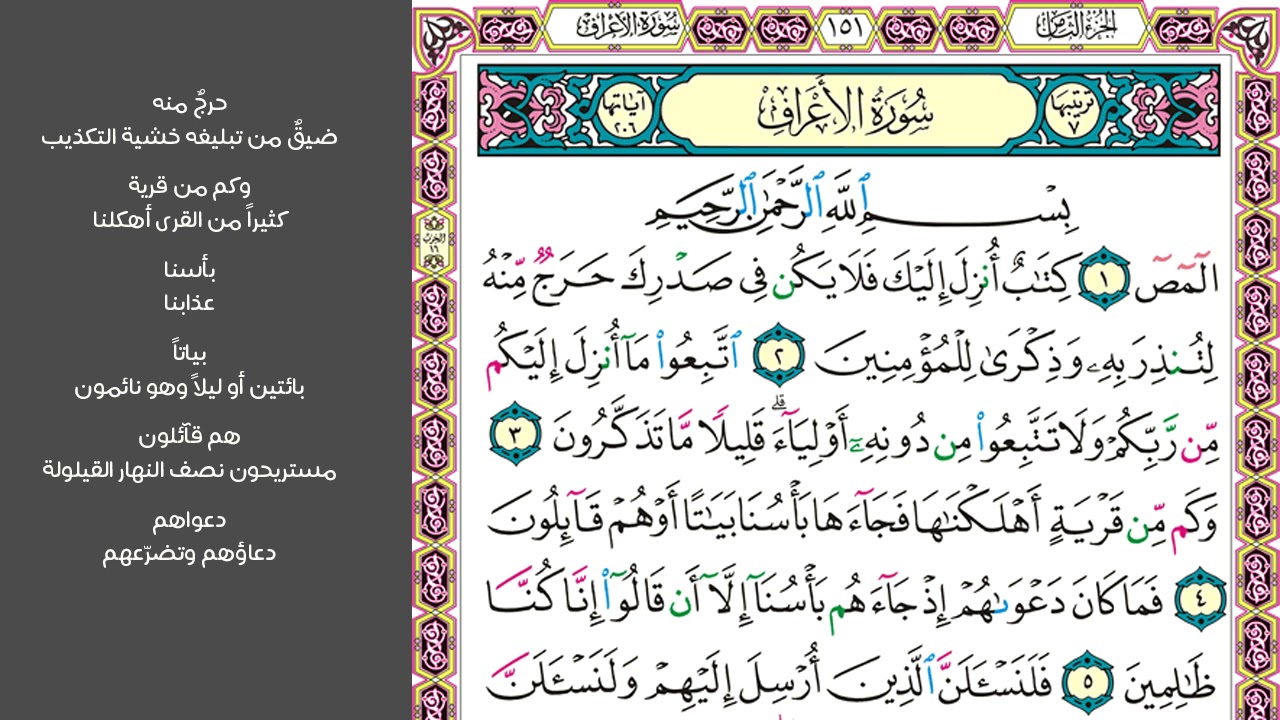 الجزء الثامن
١٥١
سورة الأعراف
ترتيبها
٧
سُورَةُ الأَعْرَافِ
آياتها
٢٠٦
بِسْمِ ٱللَّهِ ٱلرَّحْمَٰنِ ٱلرَّحِيمِ
الٓمٓصٓ ١ كِتَٰبٌ أُنزِلَ إِلَيْكَ فَلَا يَكُن فِى صَدْرِكَ حَرَجٌ مِّنْهُ
لِتُنذِرَ بِهِۦ وَذِكْرَىٰ لِلْمُؤْمِنِينَ ٢ ٱتَّبِعُوا۟ مَآ أُنزِلَ إِلَيْكُم
مِّن رَّبِّكُمْ وَلَا تَتَّبِعُوا۟ مِن دُونِهِۦٓ أَوْلِيَآءَ ۗ قَلِيلًا مَّا تَذَكَّرُونَ ٣
وَكَم مِّن قَرْيَةٍ أَهْلَكْنَٰهَا فَجَآءَهَا بَأْسُنَا بَيَٰتًا أَوْ هُمْ قَآئِلُونَ
٤ فَمَا كَانَ دَعْوَىٰهُمْ إِذْ جَآءَهُم بَأْسُنَآ إِلَّآ أَن قَالُوٓا۟ إِنَّا كُنَّا
ظَٰلِمِينَ ٥ فَلَنَسْـَٔلَنَّ ٱلَّذِينَ أُرْسِلَ إِلَيْهِمْ وَلَنَسْـَٔلَنَّ
الحزب
١٦
حرجٌ منه
ضيقٌ من تبليغه خشية التكذيب
وكم من قرية
كثيراً من القرى أهكلنا
بأسنا
عذابنا
بياتاً
بائتين أو ليلاً وهو نائمون
هم قآئلون
مستريحون نصف النهار القيلولة
دعواهم
دعاؤهم وتضرّعهم